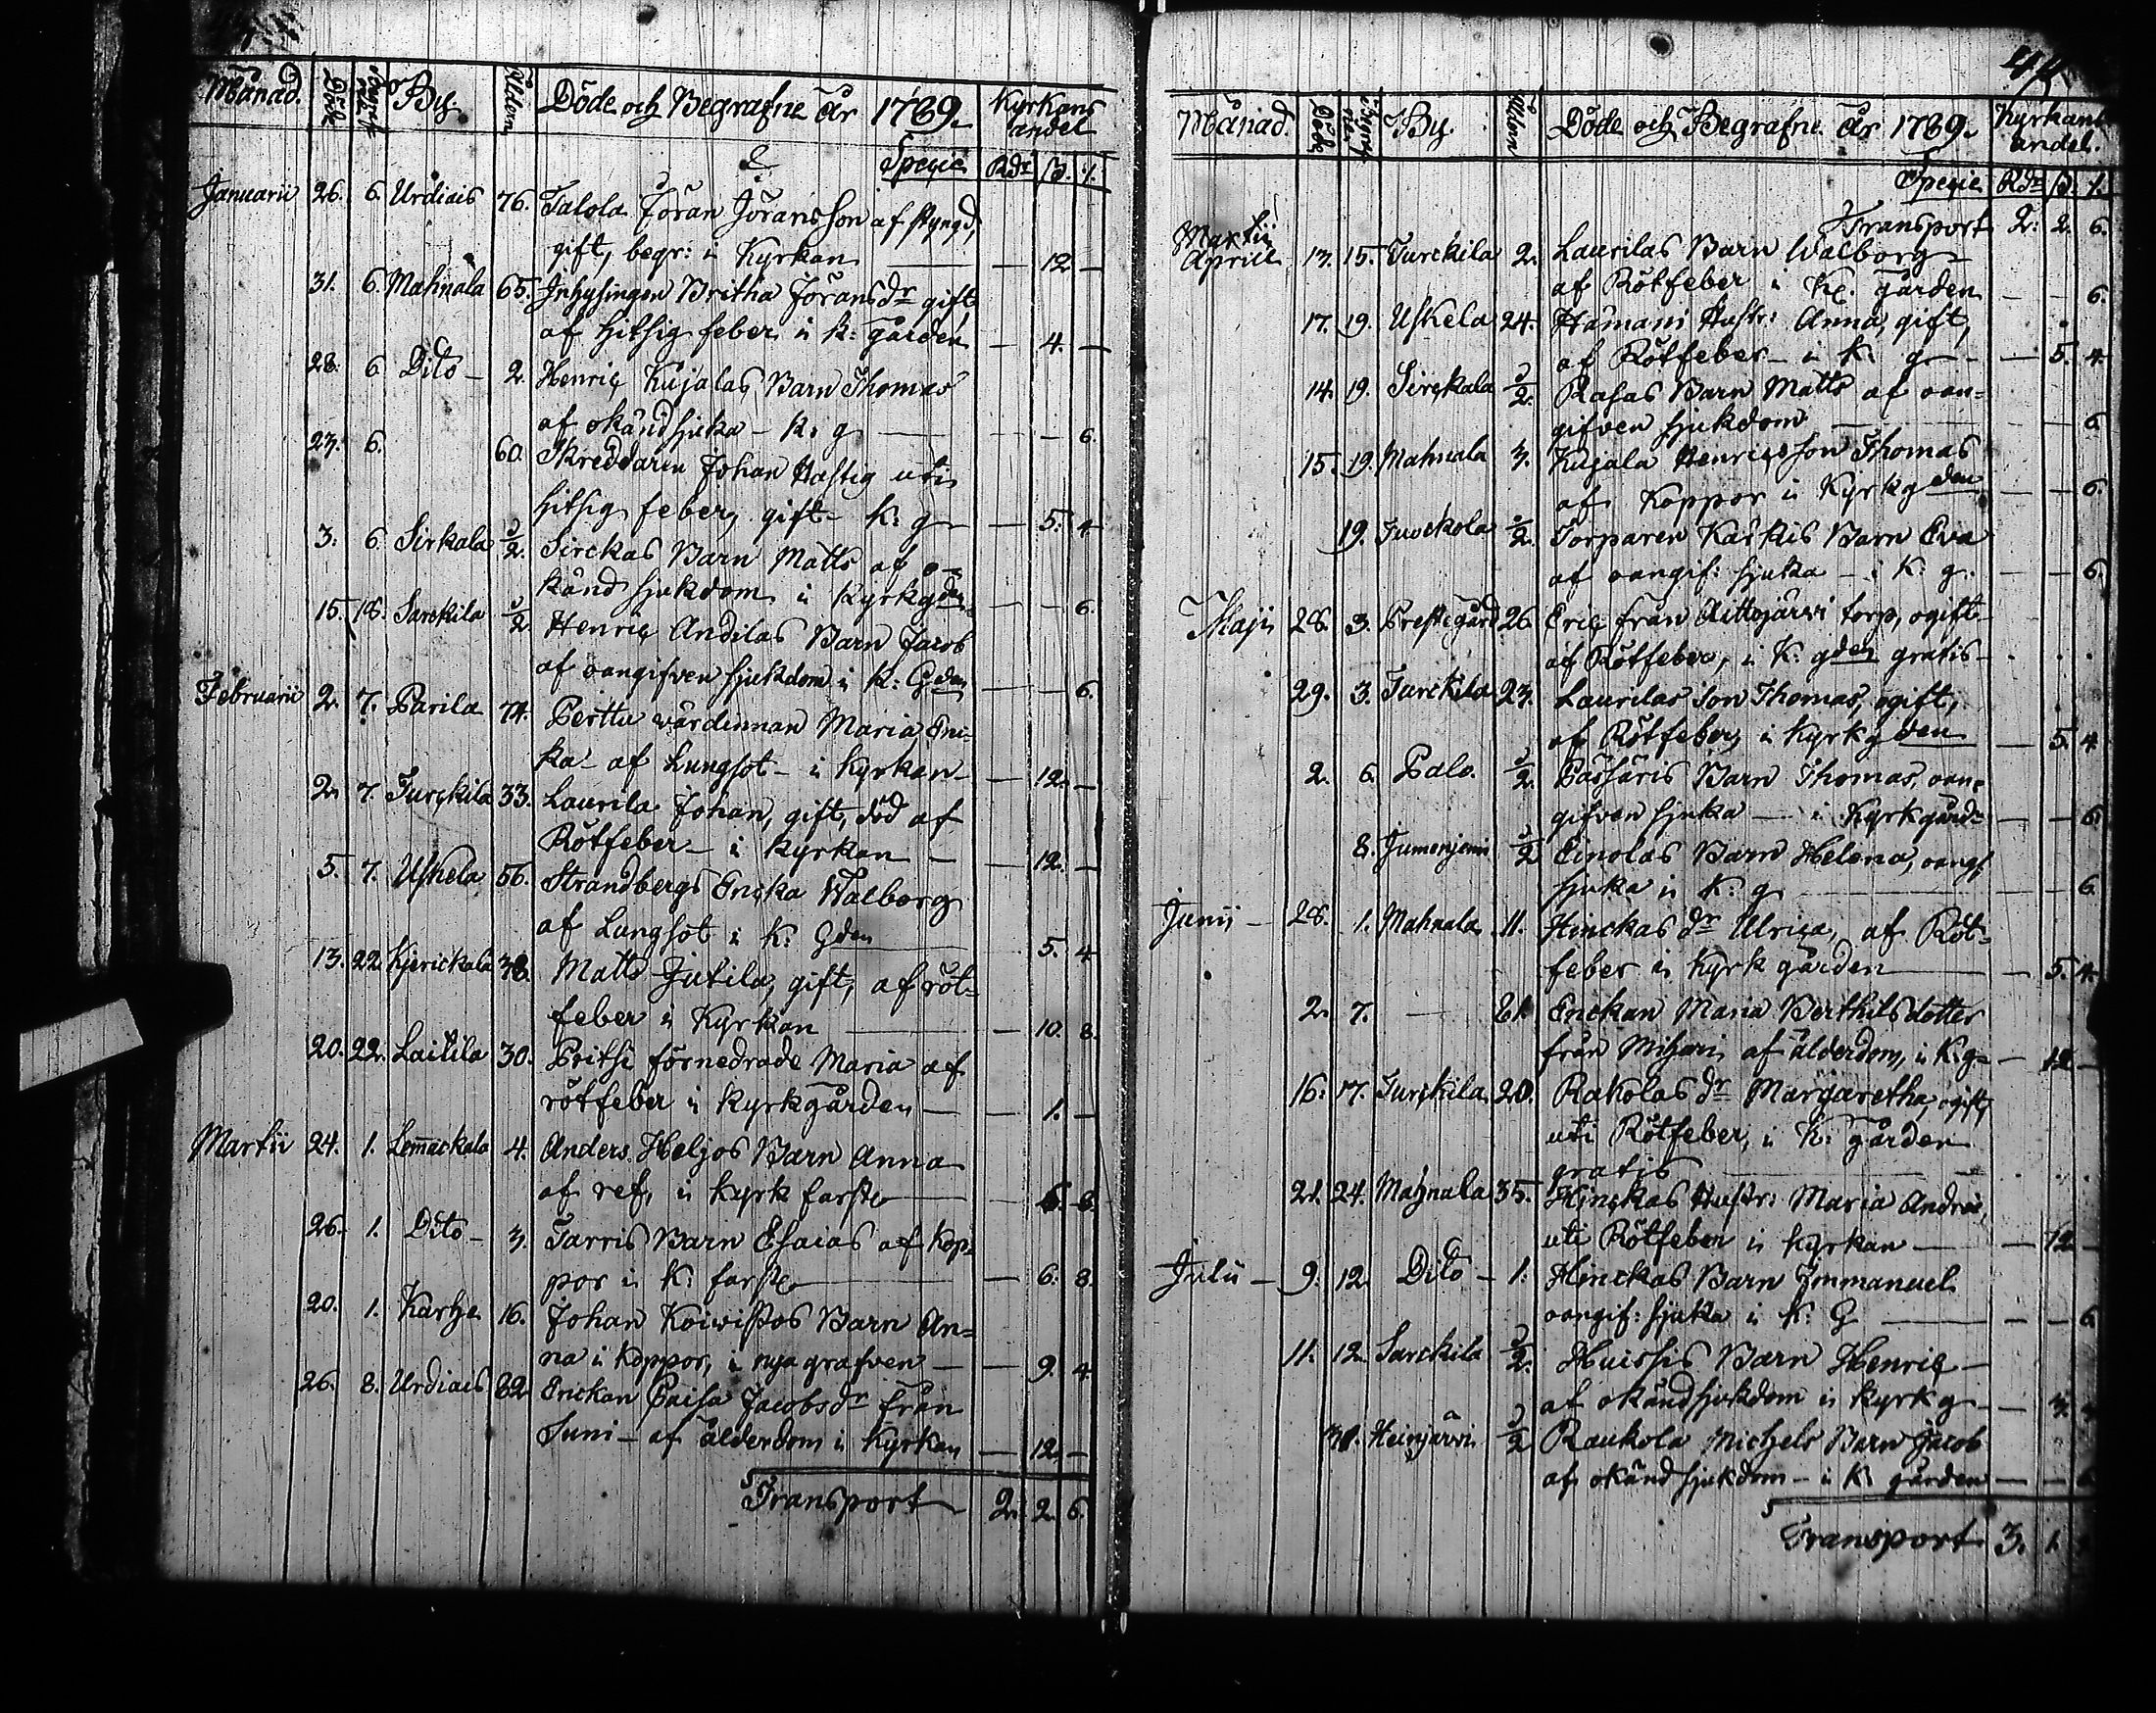 Månad. Döde Begrafne By. Åldern Döde och Begrafne År 1789. Kyrkans andel
Specie Rdr ß. ₰.
Januarii 26. 6. Urdiais 76. Talola Jöran Jöransson af styngd,
gift, begr: i Kyrkan — — 12 —
31. 6. Mahnala 65. Inhysingen Britha Jöransdr gift
af hitsig feber i k: gården — 4. —
28. 6 Dito — 2. Henric Kujalas Barn Thomas
af okänd sjuka — k: g — — 6.
23. 6. 60. Skreddaren Johan Hastig uti
hitsig feber, gift — K: g — 5. 4
3. 6 Sirkala ½. Sirckas Barn Matts af o=
känd sjukdom i Kyrkgden — — 6.
15. 18. Sarckila ½ Henric Andilas Barn Jacob
af oangifven sjukdom i K: Gden — — 6.
Februarii 2. 7. Parila 74. Perttu wärdinnan Maria, En=
ka — af Lungsot — i Kyrkan — — 12. —
2. 7. Turckila 33. Laurila Johan, gift, död af
Rötfeber — i Kyrkan — — 12. —
5. 7. Uskela 56. Strandbergs Encka Walborg
af Lungsot i K: Gden — 5. 4
13. 22. Kjerickala 38. Matts Jutila, gift, af röt=
feber i Kyrkan — — 10. 8.
20. 22. Laitila 30. Pritsi förnedrade Maria af
rötfeber i Kyrkgården — — 1. —
Martii 24. 1. Lemackala 4. Anders Heljos Barn Anna
af ref, i Kyrk farstu — 6. 8.
26. 1. Dito — 3. Tarris Barn Esaias af kop=
por i K: farstu — — 6. 8.
20. 1. Karhe 16. Johan Koiwistos Barn An=
na i koppor, i nya grafven — — 9. 4.
26. 8. Urdiais 82. Enckan Caisa Jacobsdr från
Suni — af ålderdom i Kyrkan — 12. —
Transport 2. 2. 6.
Månad. Döde Begrafne By. Åldern Döde och Begrafne År 1789. Kyrkans andel.
Specie Rdr ß. ₰.
Transport 2. 2. 6.
Martii
Aprill 13. 15. Turckila 2. Laurilas Barn Walborg
af Rötfeber i K: gården — — 6.
17. 19. Uskela 24. Hämani Hustr: Anna, gift,
af Rötfeber — i K: g — — 5. 4.
14. 19. Sirckala ½. Rasas Barn Matts af oan=
gifven sjukdom — — 6
15. 19. Mahnala 3. Kujala Henricsson Thomas
af koppor i Kyrkgden — — 6.
19. Juvckola ½. Torparen Karkis Barn Eva
af oangif: sjuka — i K: g. — — 6.
Maji 28. 3. Prestegård 26. Eric från Aittojärvi torp, ogift
af Rötfeber, i K: gden gratis
29. 3. Turckila 23. Laurilas Son Thomas, ogift,
af Rötfeber, i Kyrkgden — 5. 4
2. 6. Palo. ½. Passaris Barn Thomas, oan=
gifven sjuka — i Kyrkgård — — 6.
8. ½ Einolas Barn Helena, oangf
sjuka i K: g — 6.
Junii — 28. 1. Mahnala 11. Hinckas dr Ulrica, af Röt=
feber i Kyrk gården — — 5. 4.
2. 7. — 81. Enckan Maria Berthilsdotter
från Mihari af ålderdom, i K: g — 12 —
16. 17. Turckila 20. Rakolas dr Margaretha, ogift,
uti Rötfeber, i K: gården
gratis
21. 24. Mahnala 35. Hinckas Hustr: Maria Andrsd,
uti Rötfeber i Kyrkan — — 12 —
Julii — 9. 12. Dito — 1. Hinckas Barn Immanuel
oangif: sjuka i K: G — — 6
11. 12. Sarckila ½. Huissis Barn Henric —
af okänd sjukdom i kyrkg — — 3.
30. Heinjärvi ½ Raukola Michels Barn Jacob
af okänd sjukdom — i K: gården — — 6
Transport 3. 1.